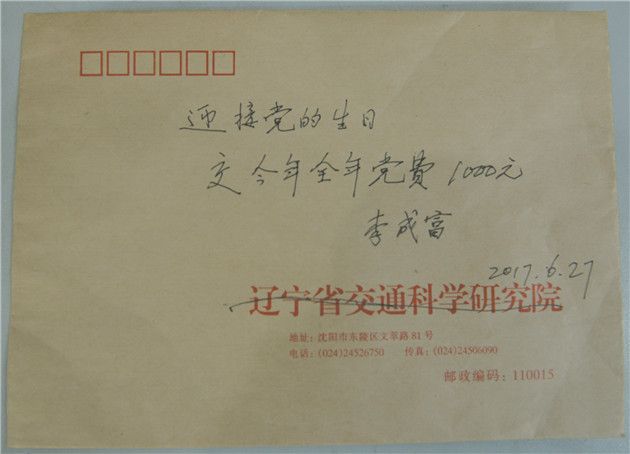 迎接党的生日
交今年全年党费1000元
李成富
2017.6.27
辽宁省交通科学研究院
地址：沈阳市东陵区文萃路81号
电话：(024)24526750 传真：(024)24506090
邮政编码：110015